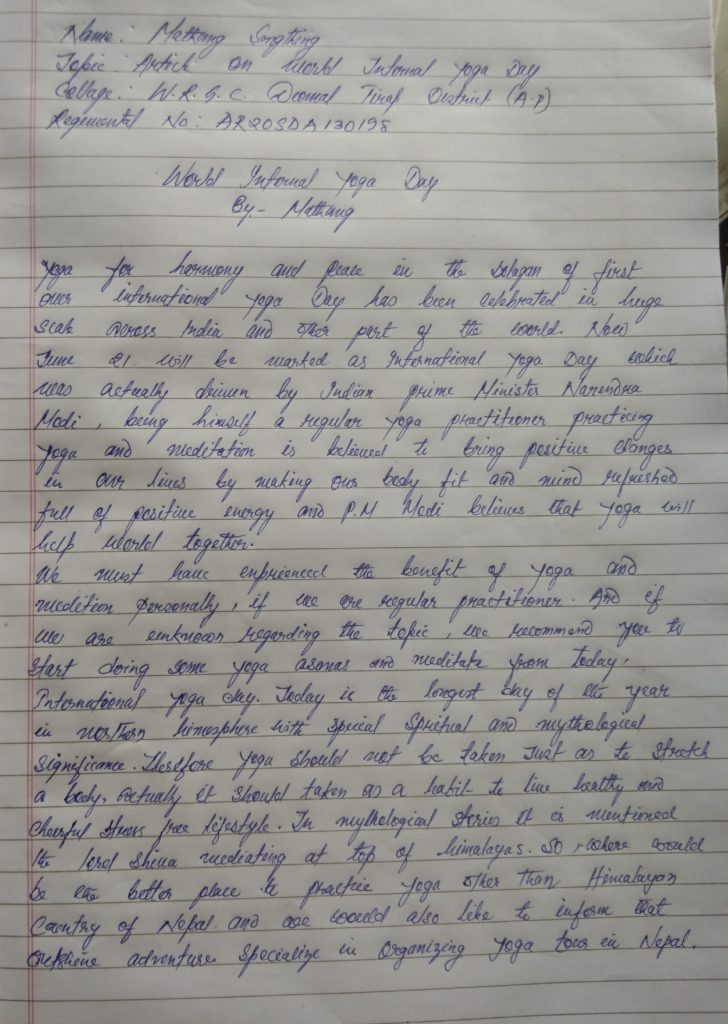 Name: Mathang Songthing
Topic: Article on World Internal Yoga Day
Collage: W.R.G.C. Deomal Tirap District (A.P)
Regimental No: AR20SDA130198
World Internal Yoga Day
By- Mathang
Yoga for harmony and peace in the Slogan of first
our international Yoga Day has been celebrated in huge
Scale across India and other part of the world. Now
June 21 will be marked as International Yoga Day which
was actually driven by Indian prime Minister Narendra
Modi, being himself a regular yoga practitioner practicing
yoga and meditation is believed to bring positive changes
in our lives by making our body fit and mind refreshed
full of positive energy and P.M Modi believes that yoga will
help world together.
We must have enprienced the benefit of yoga and
medition personally, if we are regular practitioner. And if
we are unknown regarding the topic, we recommend you to
start doing some yoga asanas and meditate from today,
International yoga day. Today is the longest day of the year
in northern himosphere with special Spritual and mythological
significance. Therefore yoga should not be taken Just as to stretch
a body, actually it should taken as a habit to live healthy and
cheerful stress free lifestyle. In mythological stories it is mentioned
the lord Shiva mediating at top of himalayas. So, where would
be the better place to practice yoga other than Himalayan
Country of Nepal. and we would also like to inform that
adventure Specialize in organizing yoga tour in Nepal.